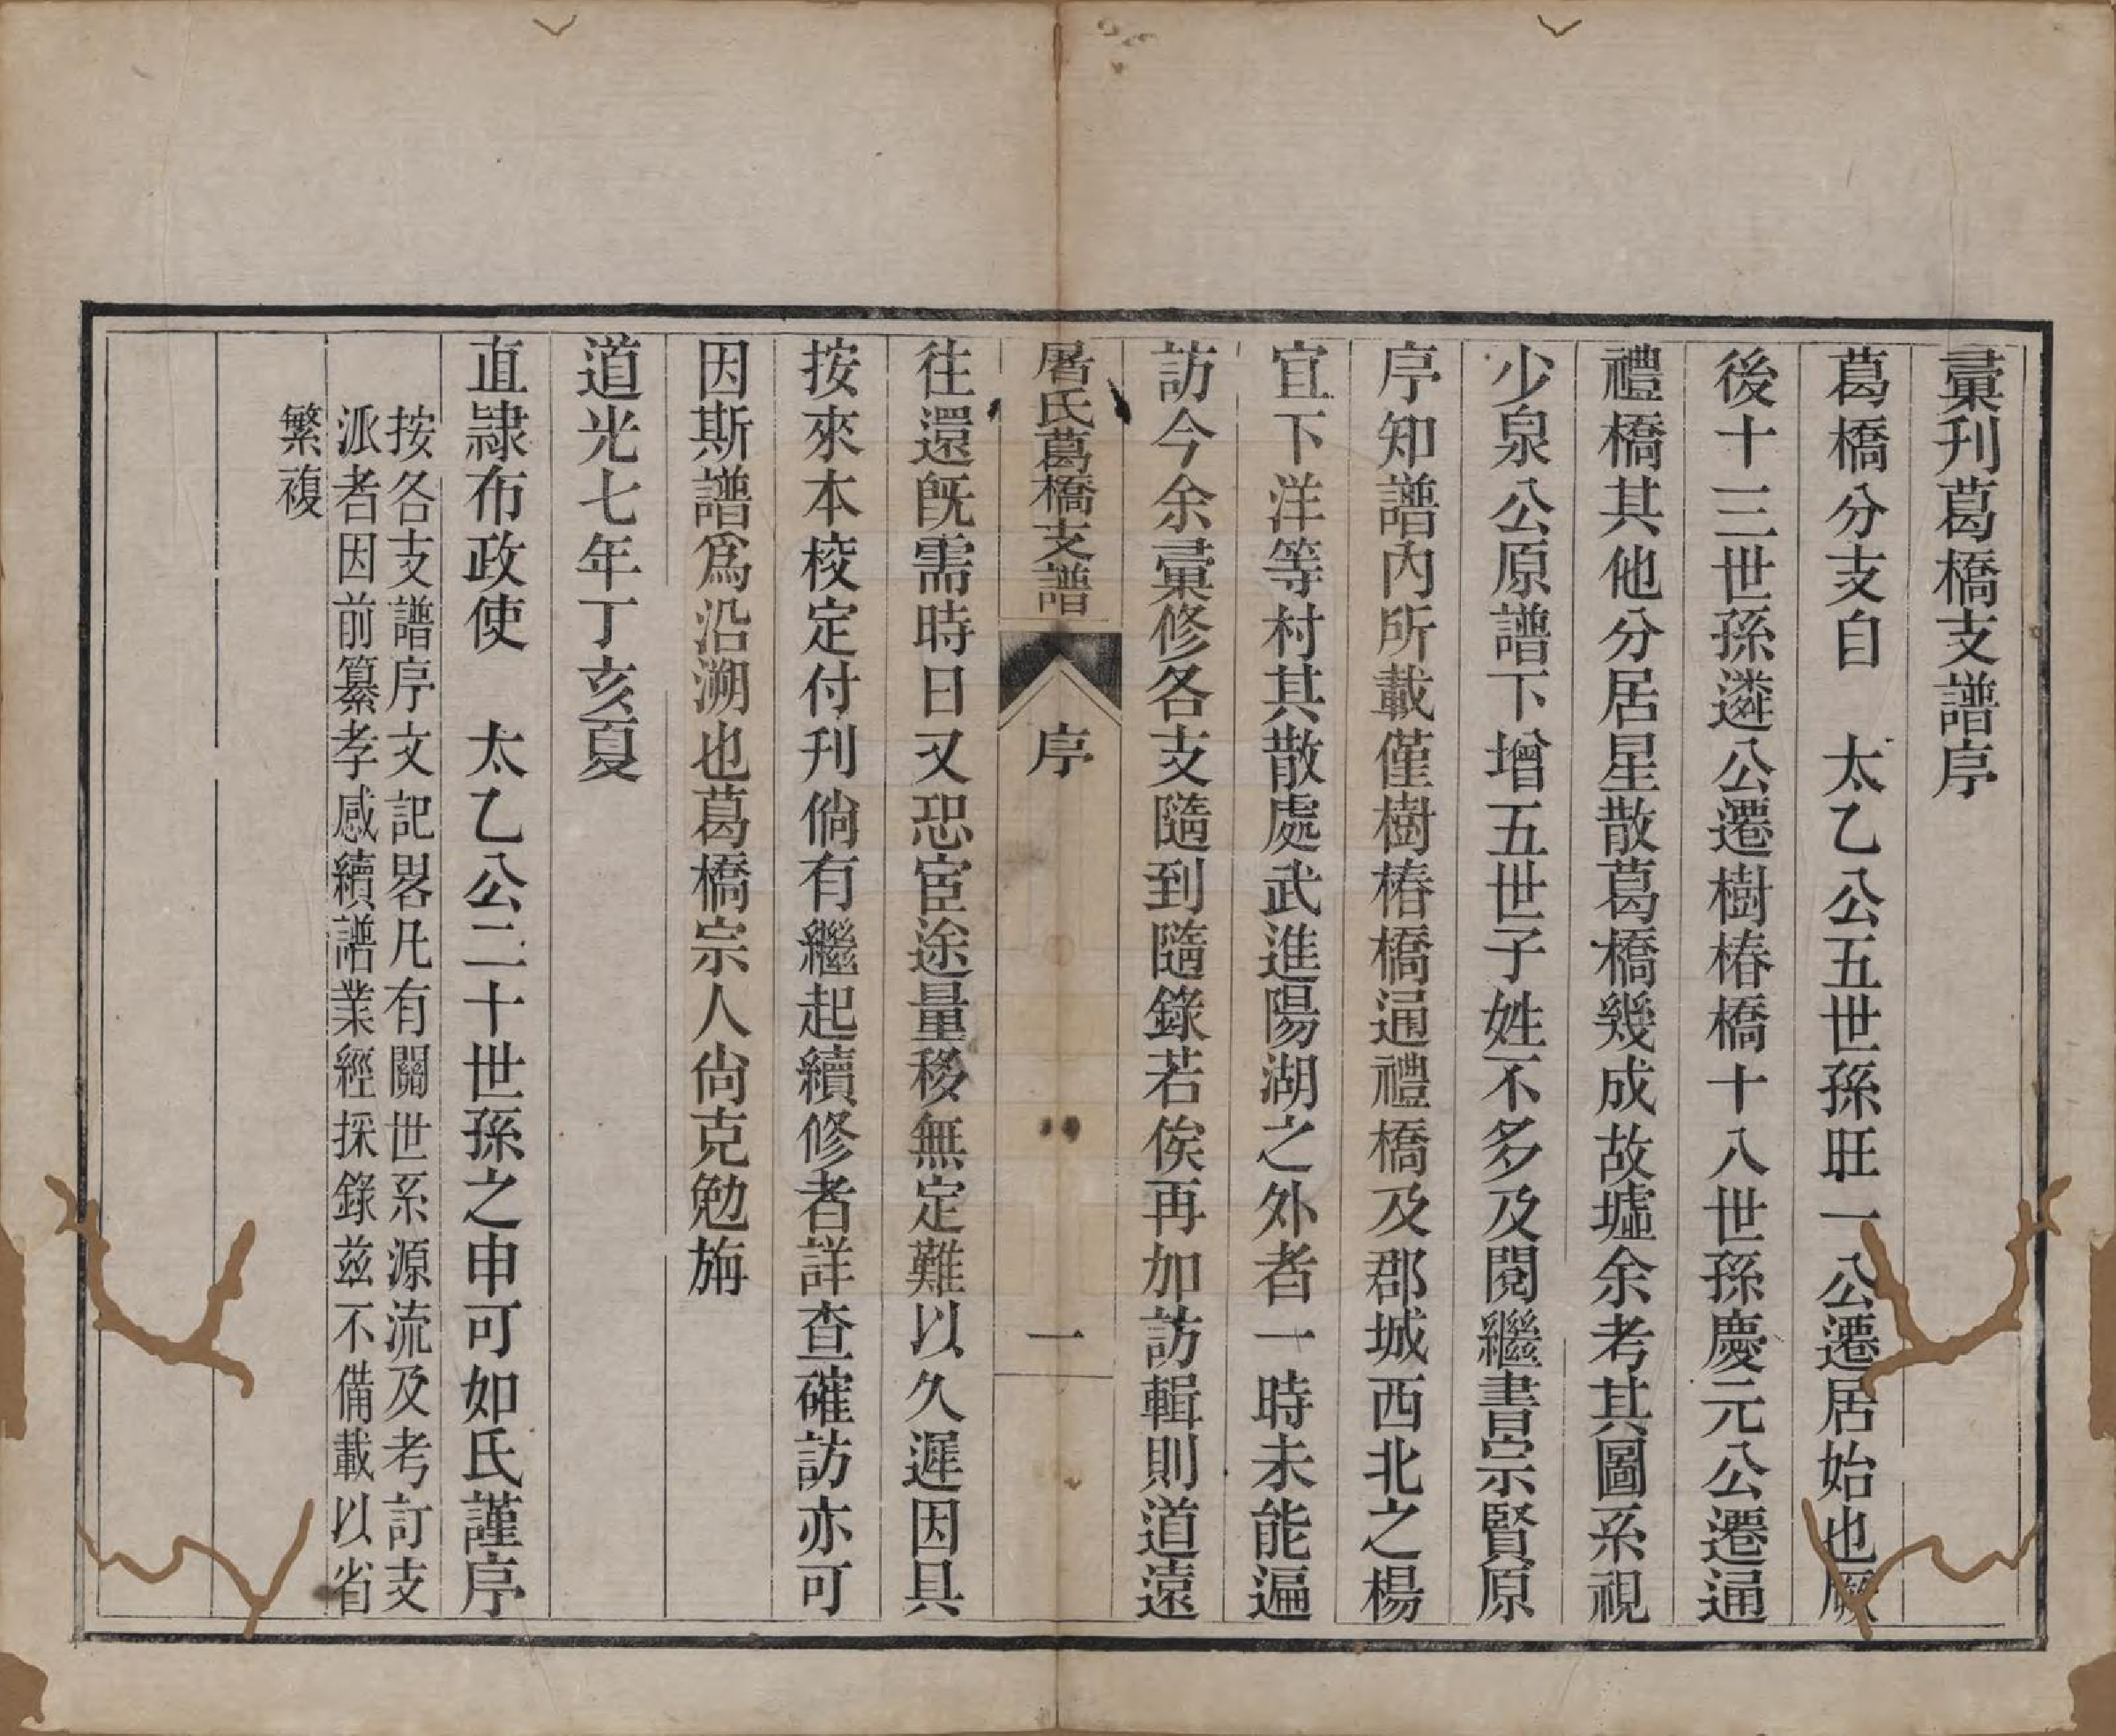 彙刊葛橋支譜序
葛橋分支自　太乙公五世孫旺一公遷居始也厥
後十三世孫遴公遷樹椿橋十八世孫慶元公遷通
禮橋其他分居星散葛橋幾成故墟余考其圖系視
少泉公原譜下增五世子姓不多及閱繼書宗賢原
序知譜內所載僅樹椿橋通禮橋及郡城西北之楊
宜下洋等村其散處武進陽湖之外者一時未能遍
訪今余彙修各支隨到隨錄若俟再加訪輯則道遠
屠氏葛橋支譜　序　一
往還旣需時日又恐宦途量移無定難以久遲因具
按來本校定付刊倘有繼起續修者詳查確訪亦可
因斯譜爲沿溯也葛橋宗人尙克勉旃
道光七年丁亥夏
直隷布政使　太乙公二十世孫之申可如氏謹序
按各支譜序文記畧凡有關世系源流及考訂支
派者因前纂孝感續譜業經採錄茲不備載以省
繁複